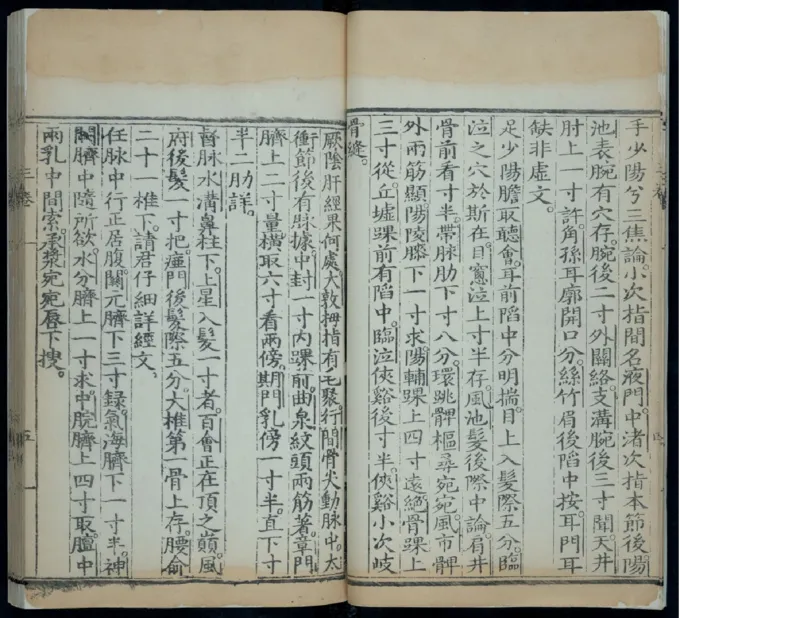 手少陽兮三焦論小次指間名液門中渚次指本節後陽
池表腕有穴存腕後二寸外關絡支溝腕後三寸聞天井
肘上一寸許角孫耳廓開口分絲竹眉後陷中按耳門耳
缺非虛文。
足少陽膽取聽會耳前陷中分明揣目上入髮際五分臨
泣之穴於斯在目窻泣上寸半存風池髮後際中論肩井
骨前看寸半帶脉肋下寸八分環跳髀樞尋宛宛風市髀
外兩筋顯陽陵膝下一寸求陽輔踝上四寸遠絕骨踝上
三寸從丘墟踝前有陷中臨泣俠谿後寸半俠谿小次岐
骨縫。
厥陰肝經果何處大敦拇指有毛聚行間骨尖動脉中太
衝節後有脉據中封一寸內踝前曲泉紋頭兩筋著章門
臍上二寸量橫取六寸看兩傍期門乳傍一寸半直下寸
半二肋詳。
督脉水溝鼻柱下上星入髮一寸者百會正在頂之巔風
府後髮一寸把瘂門後髮際五分大椎第一骨上存腰俞
二十一椎下請君仔細詳經文。
任脉中行正居腹關元臍下三寸錄氣海臍下一寸半神
闕臍中隨所欲水分臍上一寸求中脘臍上四寸取膻中
兩乳中間索承漿宛宛唇下搜。
三卷
五